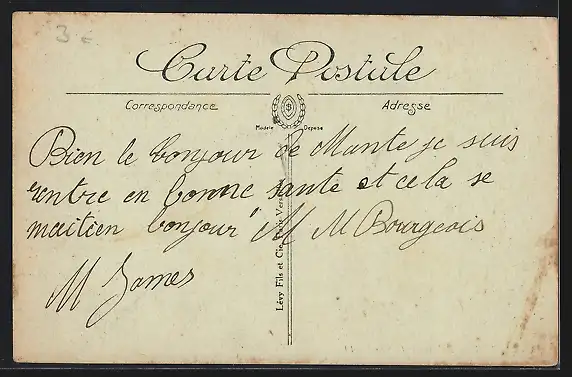 3 €
Carte Postale
Correspondance
Adresse
Modèle Déposé
Bien le bonjour de Mante je suis
rentre en bonne sante et cela se
maitien bonjour a M M Bourgeois
M James
Lévy Fils et Cie, Paris Versailles